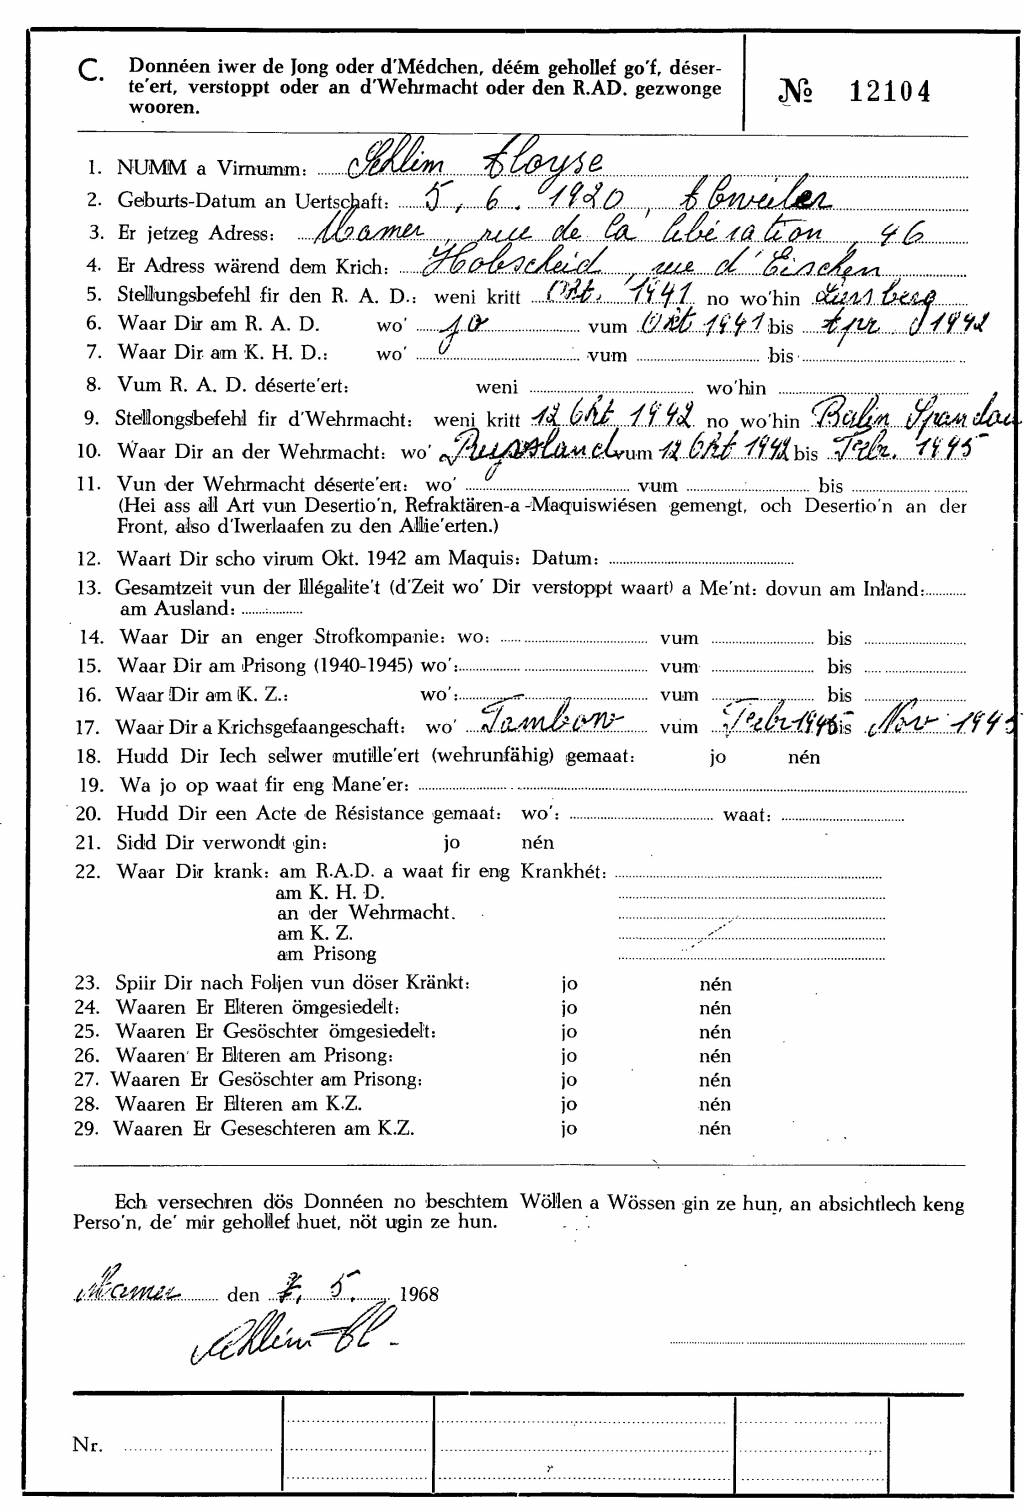 C. Donnéen iwer de Jong oder d'Médchen, déém gehollef go'f, déser-
te'ert, verstoppt oder an d'Wehrmacht oder den R.AD. gezwonge
wooren.
№ 12104
1. NUMM a Virnumm: Schlim Aloyse
2. Geburts-Datum an Uertschaft: 5. 6. 1920, Abweiler
3. Er jetzeg Adress: Mamer, rue de la libération, 46
4. Er Adress wärend dem Krich: Hobscheid, rue d'Eischen
5. Stellungsbefehl fir den R. A. D.: weni kritt Okt. 1941 no wo'hin
6. Waar Dir am R. A. D. wo' jo vum Okt 1941 bis Apr 1942
7. Waar Dir am K. H. D.: wo' vum bis
8. Vum R. A. D. déserte'ert: weni wo'hin
9. Stellongsbefehl fir d'Wehrmacht: weni kritt 12 Okt 1942 no wo'hin Berlin Spandau
10. Waar Dir an der Wehrmacht: wo' Russland vum 12 Okt 1942 bis Febr. 1945
11. Vun der Wehrmacht déserte'ert: wo' vum bis
(Hei ass all Art vun Desertio'n, Refraktären-a-Maquiswiésen gemengt, och Desertio'n an der
Front, also d'Iwerlaafen zu den Allie'erten.)
12. Waart Dir scho virum Okt. 1942 am Maquis: Datum:
13. Gesamtzeit vun der Illégalite't (d'Zeit wo' Dir verstoppt waart) a Me'nt: dovun am Inland:
am Ausland:
14. Waar Dir an enger Strofkompanie: wo: vum bis
15. Waar Dir am Prisong (1940-1945) wo': vum bis
16. Waar Dir am K. Z.: wo': vum bis
17. Waar Dir a Krichsgefaangeschaft: wo' Tambow vum Febr 1945 bis Nov 1945
18. Hudd Dir Iech selwer mutille'ert (wehrunfähig) gemaat: jo nén
19. Wa jo op waat fir eng Mane'er:
20. Hudd Dir een Acte de Résistance gemaat: wo': waat:
21. Sidd Dir verwondt gin: jo nén
22. Waar Dir krank: am R.A.D. a waat fir eng Krankhét:
am K. H. D.
an der Wehrmacht.
am K. Z.
am Prisong
23. Spiir Dir nach Foljen vun döser Kränkt: jo nén
24. Waaren Er Elteren ömgesiedelt: jo nén
25. Waaren Er Gesöschter ömgesiedelt: jo nén
26. Waaren Er Elteren am Prisong: jo nén
27. Waaren Er Gesöschter am Prisong: jo nén
28. Waaren Er Elteren am K.Z. jo nén
29. Waaren Er Geseschteren am K.Z. jo nén
Ech versechren dös Donnéen no beschtem Wöllen a Wössen gin ze hun, an absichtlech keng
Perso'n, de' mir gehollef huet, nöt ugin ze hun.
Mamer den 7. 5. 1968
Schlim Al.
Nr.